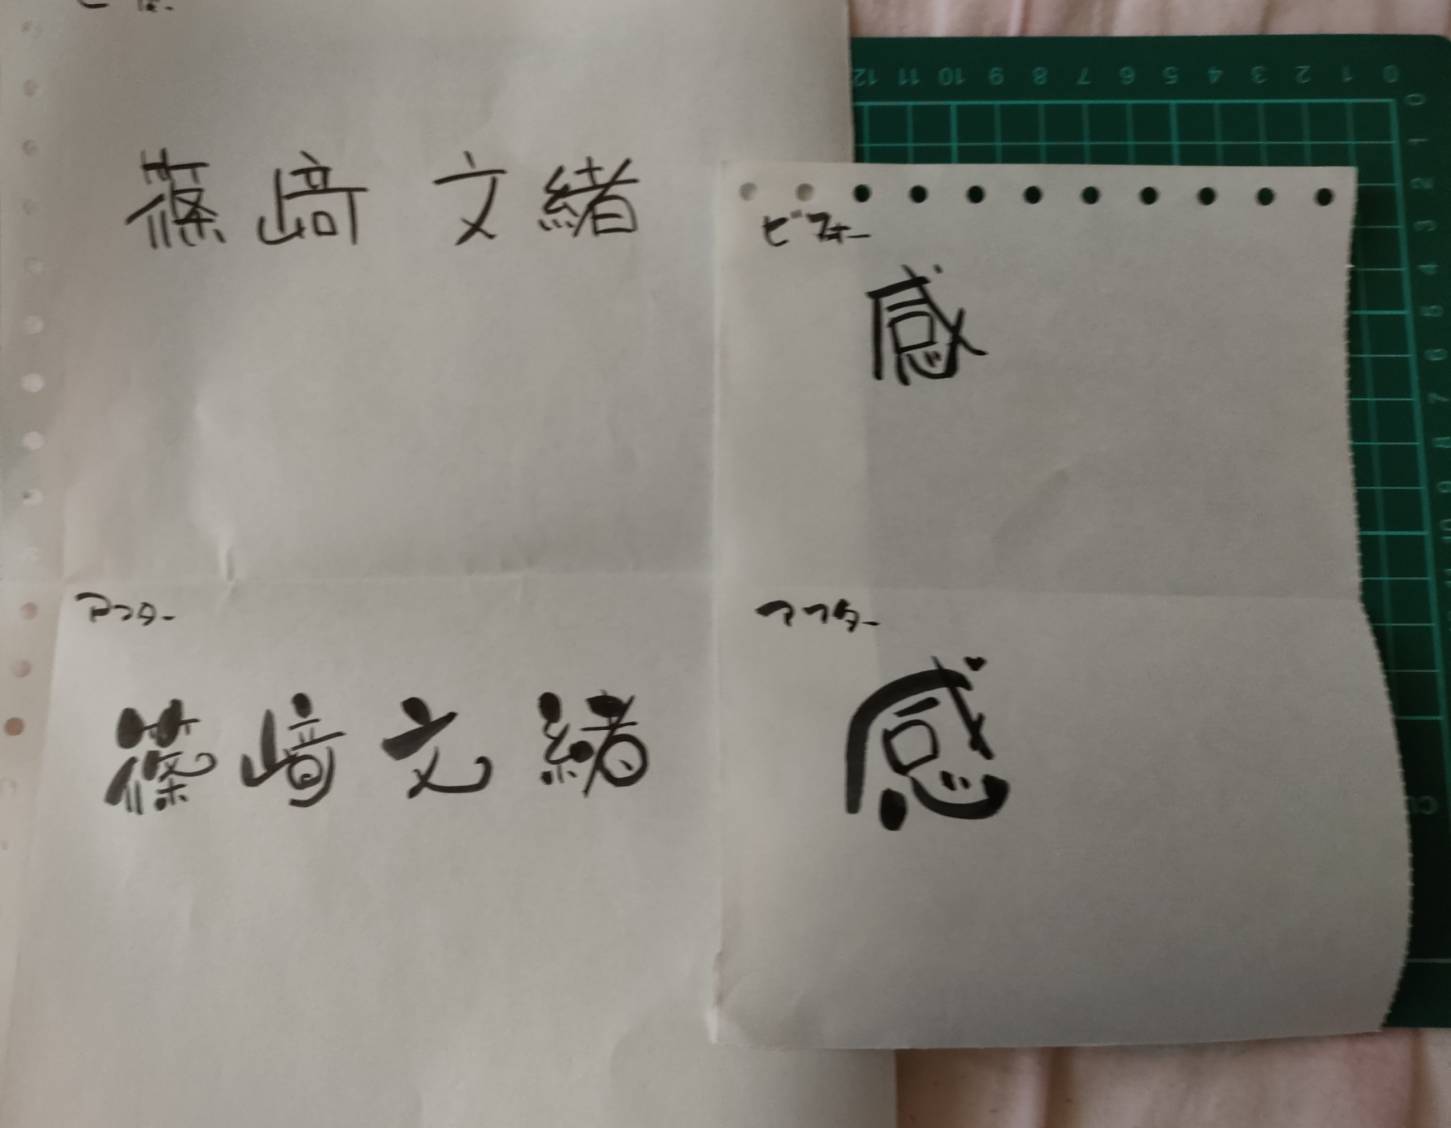 篠﨑 文緒
アフター
篠﨑文緒
ビフォー
感
アフター
感
12 11 10 9 8 7 6 5 4 3 2 1 0
0
1
2
3
4
5
6
7
8
9
10